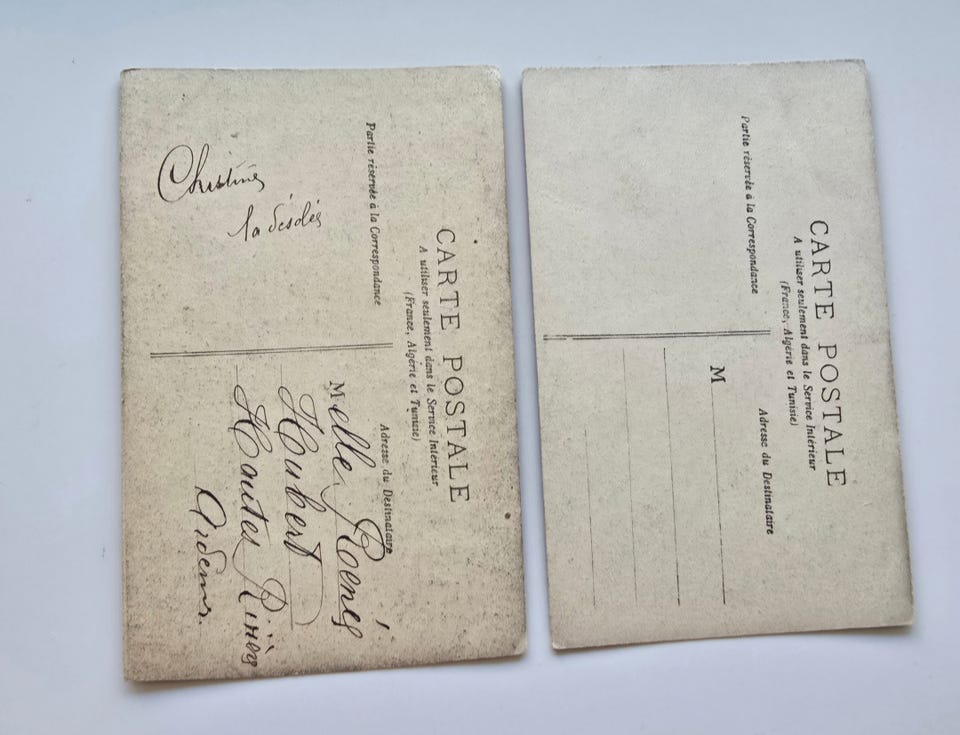 CARTE POSTALE
A utiliser seulement dans le Service Intérieur
(France, Algérie et Tunisie)
Partie réservée à la Correspondance
Adresse du Destinataire
Christine
Melle Roené
Hubert
Hautes Rivièr
CARTE POSTALE
A utiliser seulement dans le Service Intérieur
(France, Algérie et Tunisie)
Partie réservée à la Correspondance
Adresse du Destinataire
M